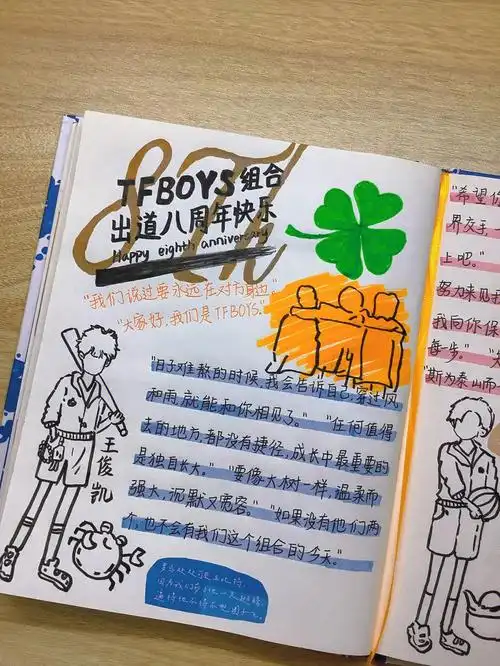 8Th
TFBOYS组合
出道八周年快乐
Happy eighth anniversary
"我们说过要永远在对方身边。"
"大家好,我们是TFBOYS。"
"日子难熬的时候,我会告诉自己,穿过风
和雨,就能和你相见了。" "任何值得
去的地方,都没有捷径,成长中最重要的
是独自长大。" "要像大树一样,温柔而
强大,沉默又宽容。" "如果没有他们两
个,也不会有我们这个组合的今天。"
王俊凯
"希望你
界交手
上吧。"
努力来见
我向你保
每步。" 
"斯为泰山而